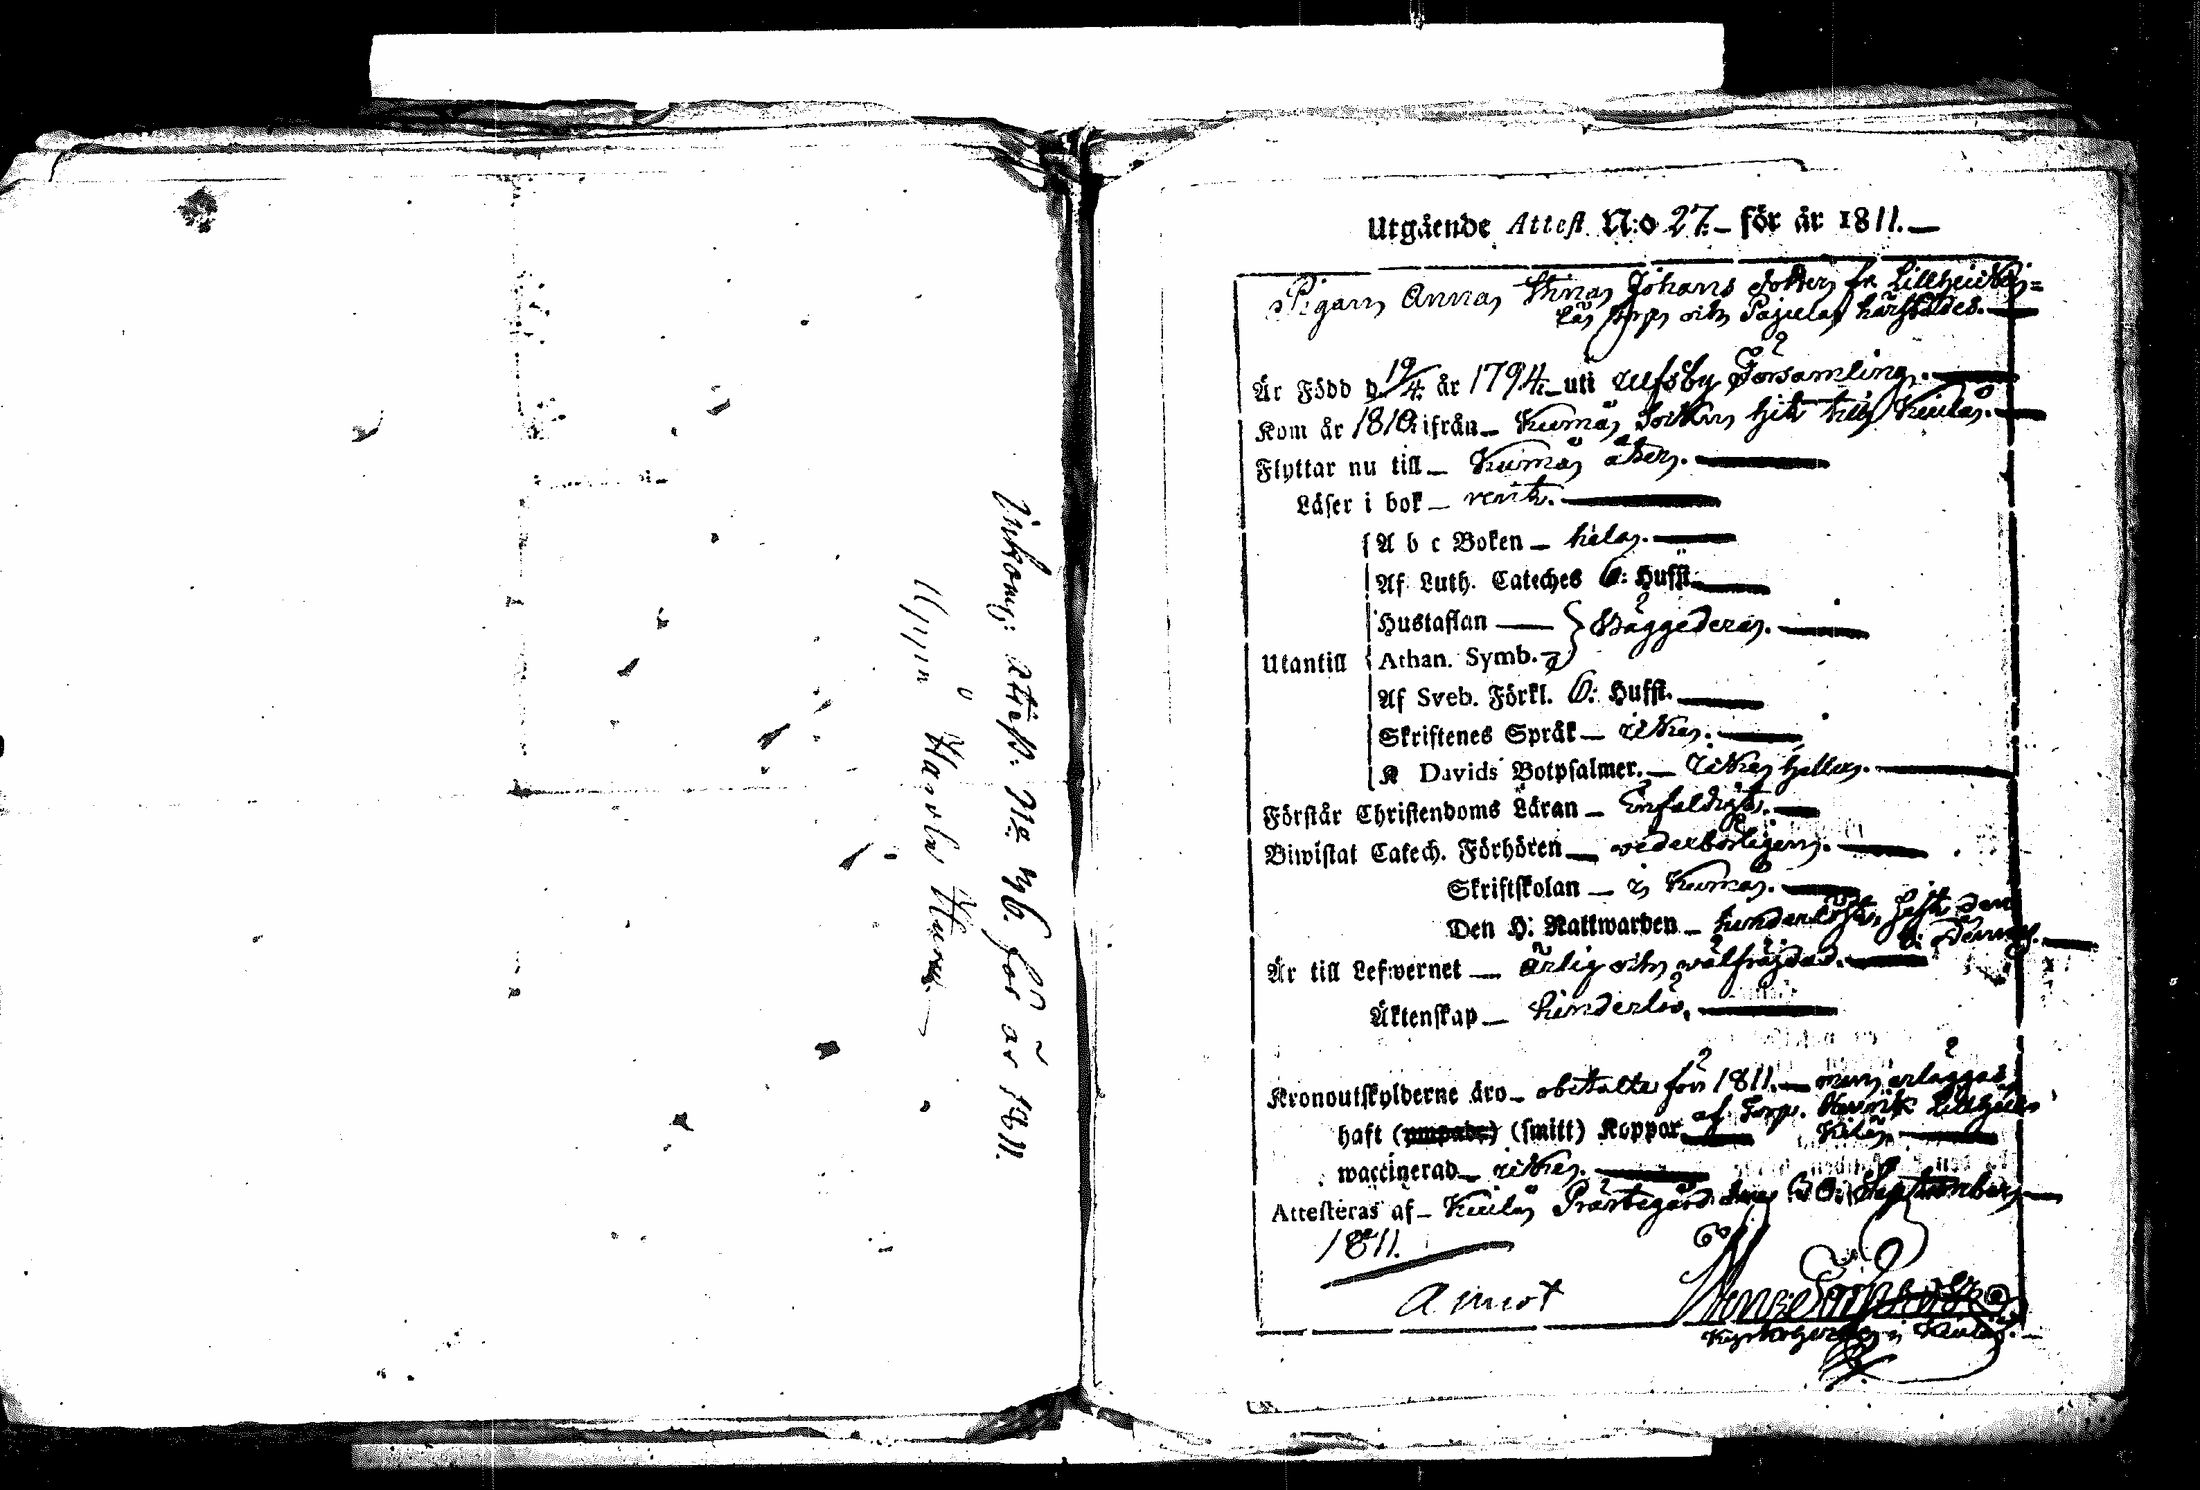 Inkom: attest. No 46. för år 1811.
Utgående Attest N:o 27.– för år 1811.–
Pigan Anna Stina Johans dotter fr. Lillheiki=
torp och Pajula härstädes.–
Är Född d. 19/4. år 1794.– uti Ulfsby Församling.–
Kom år 1810. ifrån– Kumå Sockn hit till Kiulå.–
Flyttar nu till– Kumå åter.–
Läser i bok– rent.–
A b c Boken– hela.–
Af Luth. Cateches 6: Hufst.–
Hustaflan – } Bäggedera.–
Utantill { Athan. Symb.–
Af Sveb. Förkl. 6: Hufst.–
Skriftenes Språk– icke.–
K Davids Botpsalmer.– icke heller.–
Förstår Christendoms Läran– Enfaldigt.–
Biwistat Catech. Förhören– wederbörligen.–
Skriftskolan– i Kumå.–
Den H. Nattwarden– sist den
Är till Lefwernet– ärlig och wälfrägdad.–
Äktenskap– hinderlös.–
Kronoutskylderne äro– obetalte för 1811.– men erläggas
haft (smitt) Koppor– af Torp. Henrik
waccinerad– icke.–
Attesteras af– Kiulå Prästegård den 30. September–
1811.
Kyrkoherde i Kiulå.–